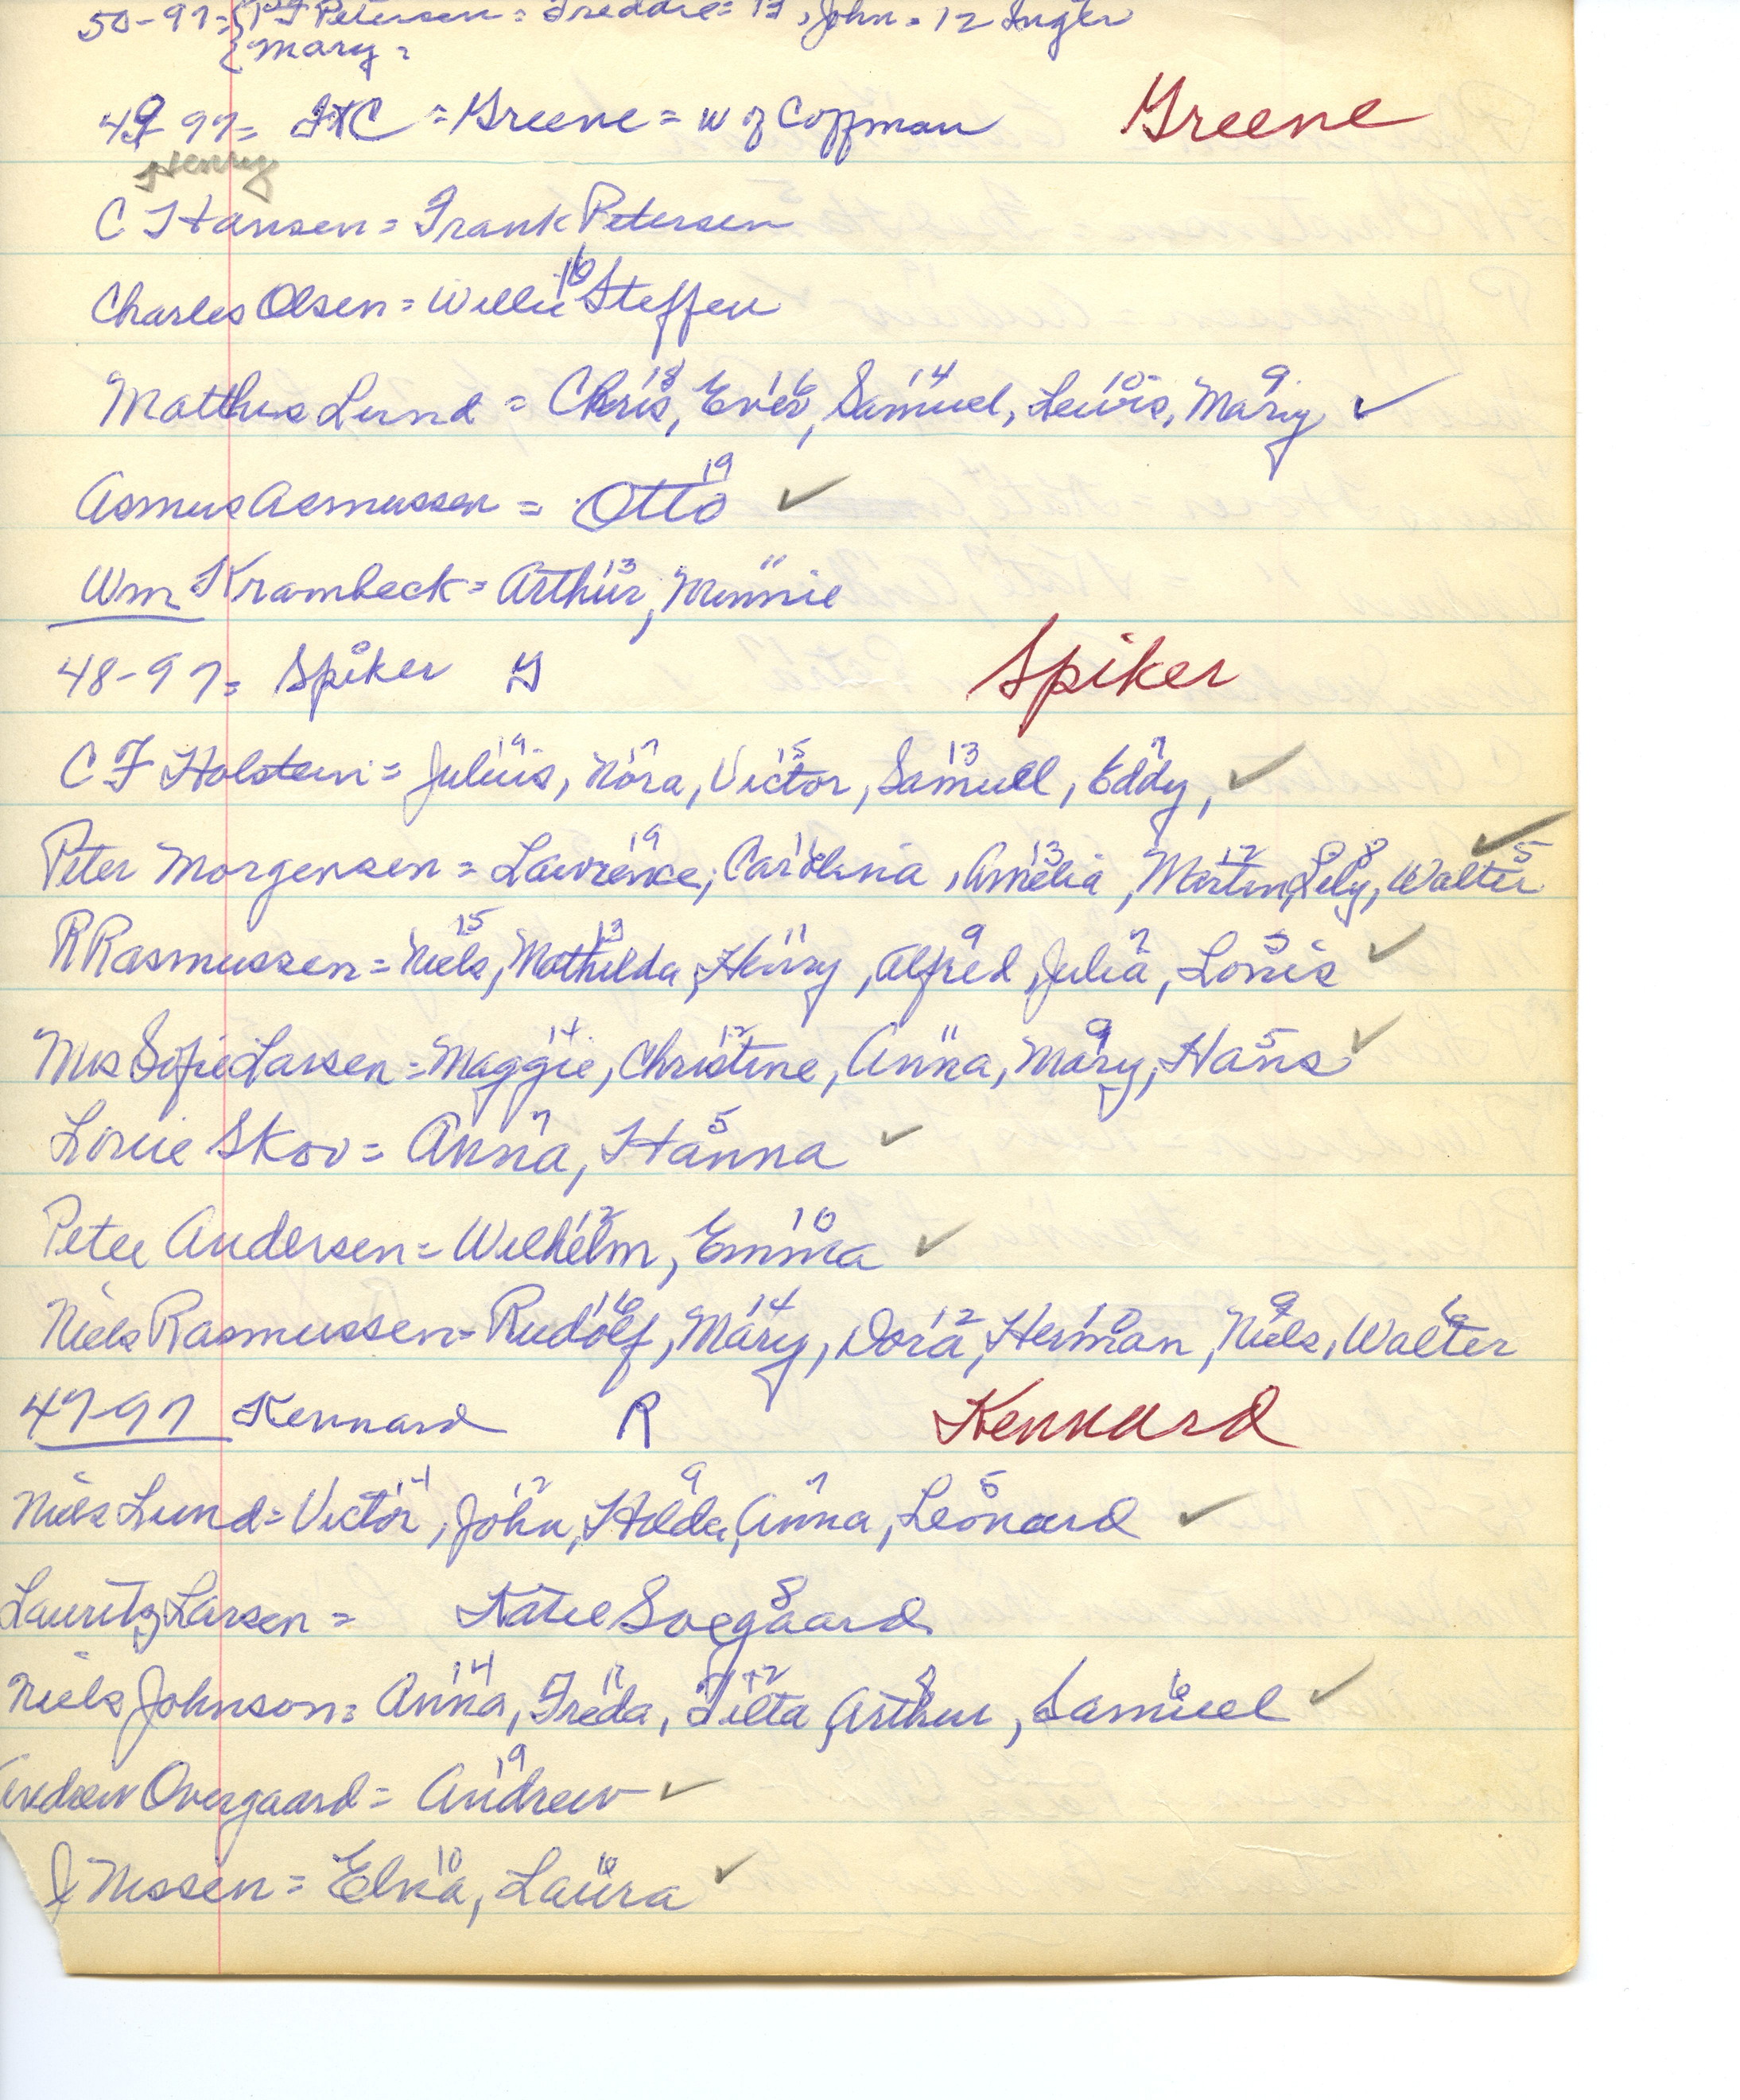 50-97 = { P J Petersen = Freddie = 13, John = 12 Inger
{ Mary =
49 97 = = Greene = w of Coffman Greene
Henry
C Hansen = Frank Petersen
16
Charles Olsen = Willie Steffen
18 16 14 10 9
Matthis Lund = Chris, Ever, Samuel, Lewis, Mary ✓
19
Asmus Asmussen = Otto ✓
13 11
Wm Krambeck = Arthur, Minnie
48-97 = Spiker G Spiker
19 17 15 13 7
C F Holstein = Julius, Nora, Victor, Samuell, Eddy, ✓
19 13 12 8 5
Peter Morgensen = Lawrence, Carolina, Amelia, Martin, Lily, Walter ✓
15 13 11 9 7 5
R Rasmussen = Niels, Mathilda, Henry, Alfred, Julia, Louis ✓
14 12 11 9 5
Mrs Sofie Larsen = Maggie, Christine, Anna, Mary, Hans ✓
7 5
Louie Skov = Anna, Hanna ✓
12 10
Peter Andersen = Wilhelm, Emma ✓
16 14 12 10 9 6
Niels Rasmussen = Rudolf, Mary, Dora, Herman, Niels, Walter
47-97 Kennard R Kennard
14 12 9 7 5
Niels Lund = Victor, John, Hilda, Anna, Leonard ✓
8
Lauritz Larsen = Katie Soegaard
14 12 8 6
Niels Johnson = Anna, Freda, Arthur, Samuel ✓
19
Andrew Overgaard = Andrew ✓
10 10
J Nissen = Elna, Laura ✓